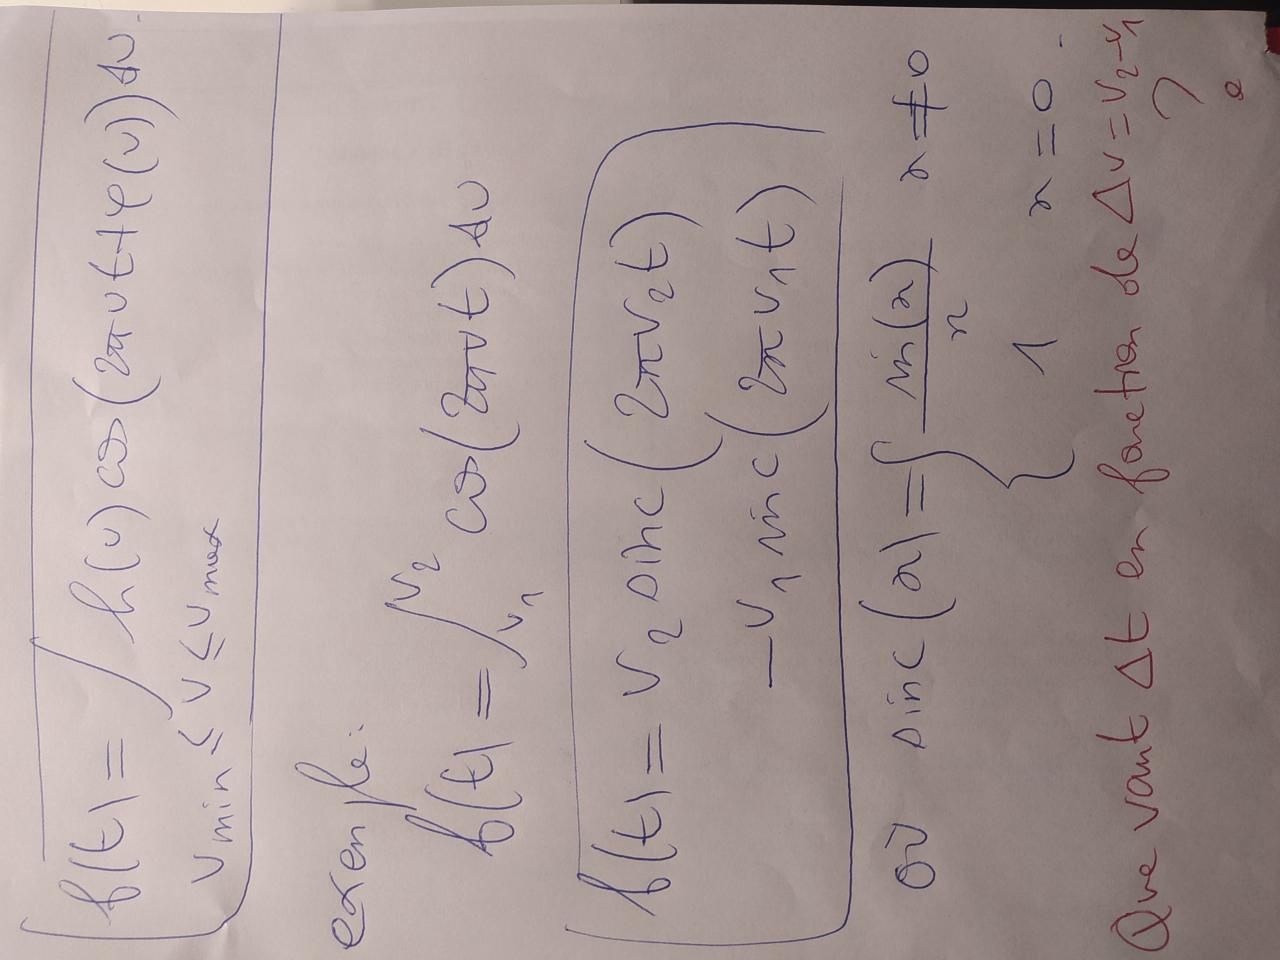 f(t) = ∫ h(ν) cos(2πνt + φ(ν)) dν.
ν min ≤ ν ≤ ν max
exemple:
f(t) = ∫ν1 ν2 cos(2πνt) dν
f(t) = ν2 sinc(2πν2t)
-ν1 sinc(2πν1t)
où sinc(x) = { sin(x)/x x≠0
1 x=0.
Que vaut Δt en fonction de Δν = ν2-ν1
?